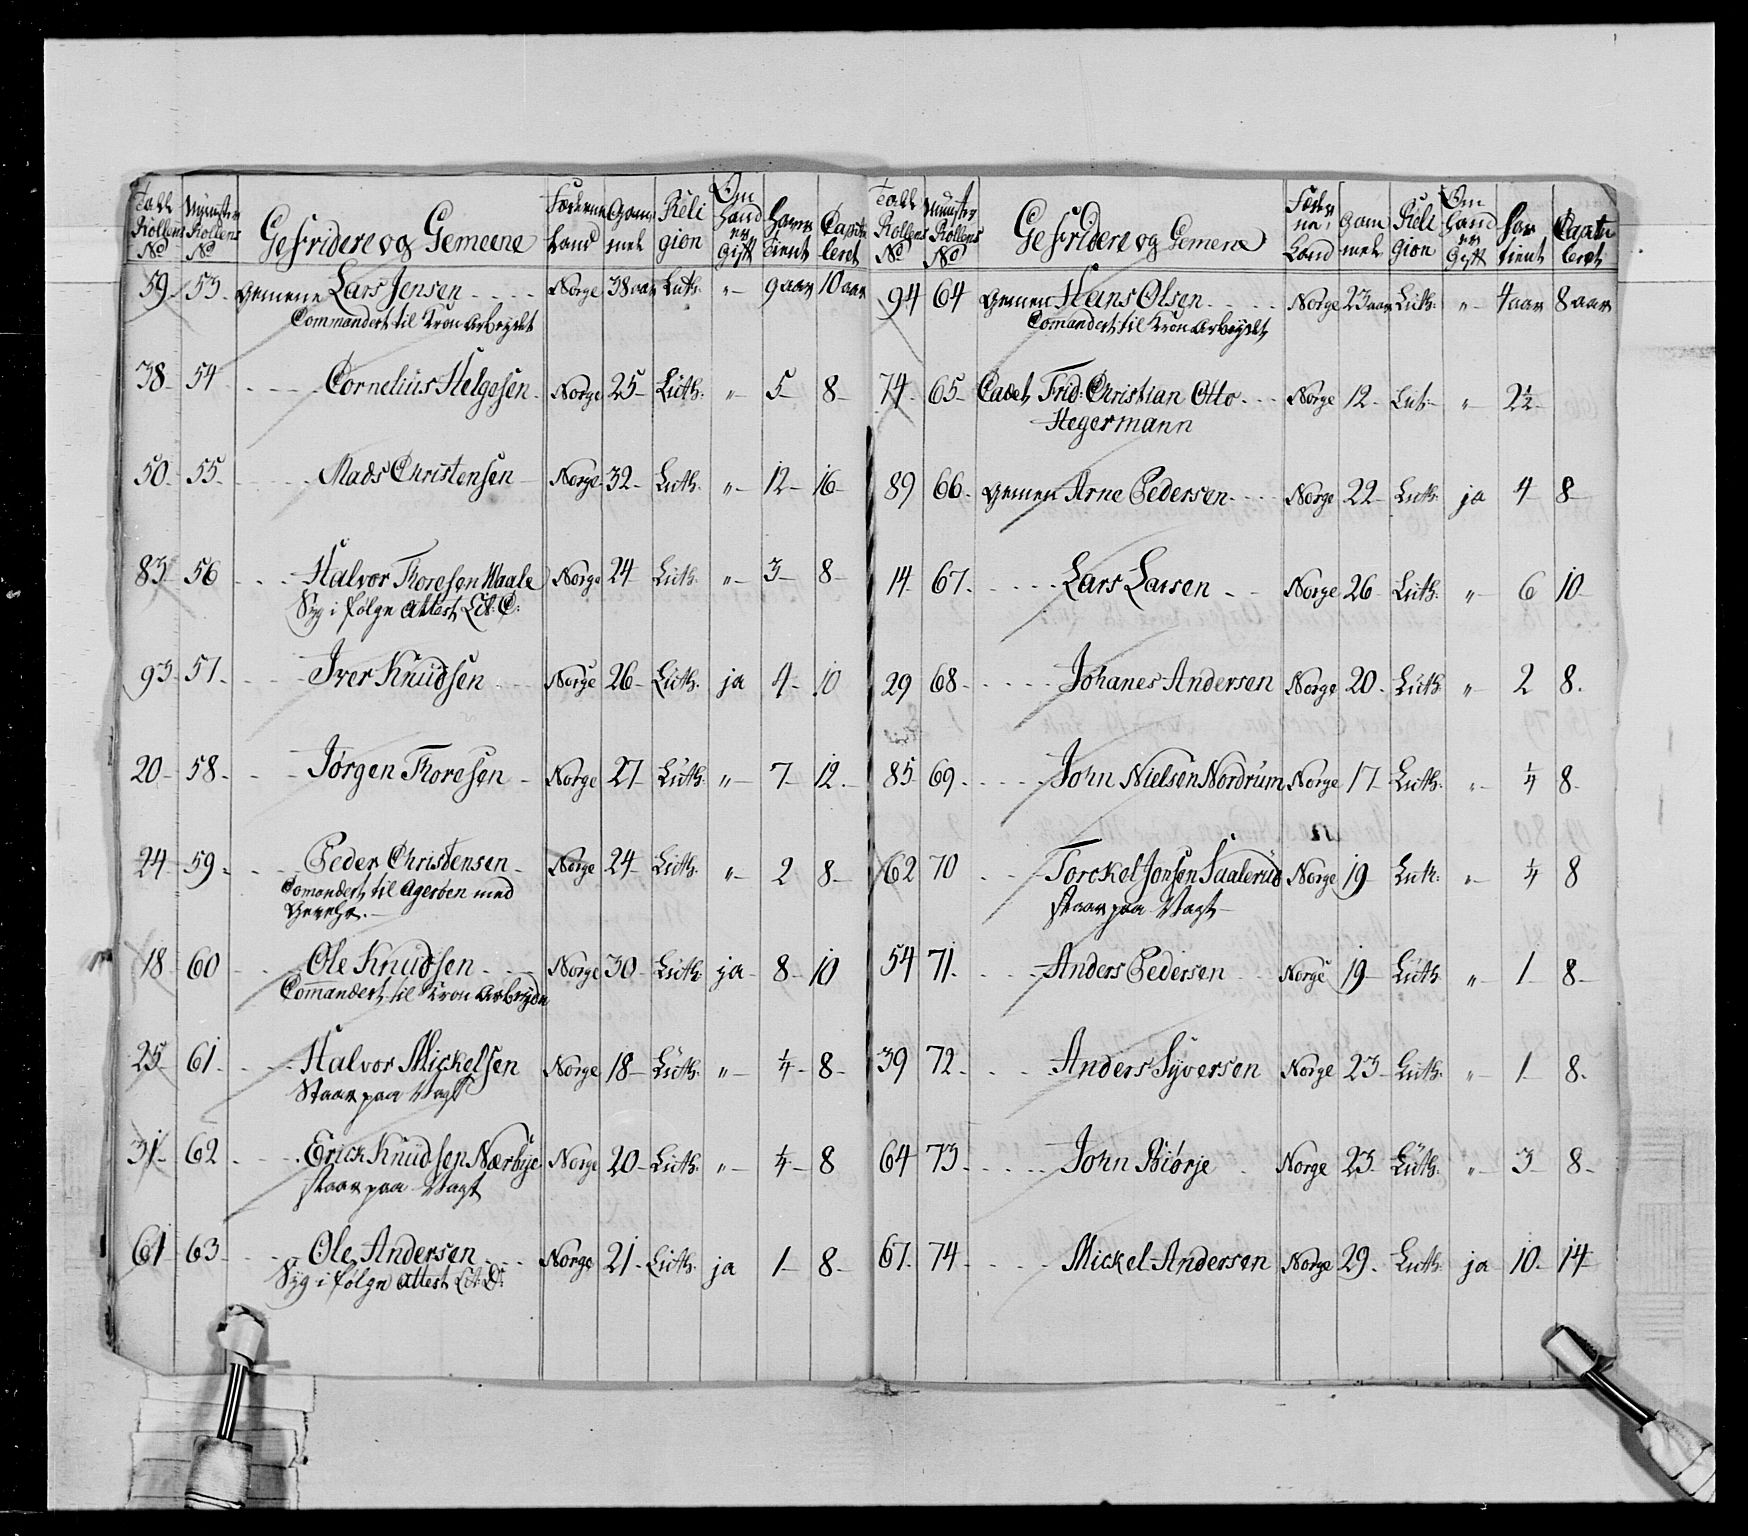 Tall Rollens No | Mynster Rollens No | Gefridere og Gemeene | Fæderne Land | Gam mel | Reli gion | Om hand er Gift | Haver tient | Capitu leret
59 53 Gemene Lars Jensen Norge 38 aar Luth: „ 9 aar 10 aar
Commandert til Kron Arbeydet
38 54 Cornelius Helgesen Norge 25 Luth: „ 5 8
50 55 Mads Christensen Norge 32 Luth: „ 12 16
83 56 Halvor Thoresen Waale Norge 24 Luth: „ 3 8
Syg i følge Attest Lit: C:
93 57 Iver Knudsen Norge 26 Luth: ja 4 10
20 58 Jørgen Thoresen Norge 27 Luth: „ 7 12
24 59 Peder Christensen Norge 24 Luth: „ 2 8
Comandert til Ageröen med
18 60 Ole Knudsen Norge 30 Luth: ja 8 10
Commandert til Kron Arbeyde
25 61 Halvor Mickelsen Norge 18 Luth: „ ¼ 8
Staar paa Vagt
31 62 Erick Knudsen Nærbye Norge 20 Luth: „ ¼ 8
staar paa Vagt
61 63 Ole Andersen Norge 21 Luth: ja 1 8
Syg i følge Attest Lit: D:
Tall Rollens No | Munster Rollens No | Gefridere og Gemene | Fæder ne Land | Gam mel | Reli gion | Om hand er Gift | Har tient | Capitu leret
94 64 Gemen Hans Olsen Norge 23 aar Luth: „ 4 aar 8 aar
Comandert til Kron Arbeydet
74 65 Cadet Frid: Christian Otto Norge 12 Lut: „ 2½
Hegermann
89 66 Gemen Arne Pedersen Norge 22 Luth: ja 4 8
14 67 Lars Larsen Norge 26 Luth: „ 6 10
29 68 Johanes Andersen Norge 20 Luth: „ 2 8
85 69 John Nielsen Nordrum Norge 17 Luth: „ ¼ 8
62 70 Torckel Jonsen Saalerud Norge 19 Luth: „ ¼ 8
staar paa Vagt
54 71 Anders Pedersen Norge 19 Luth „ 1 8
39 72 Anders Syversen Norge 23 Luth: „ 1 8
64 73 John Biørje Norge 23 Luth: „ 3 8
67 74 Mickel Andersen Norge 29 Luth: ja 10 14